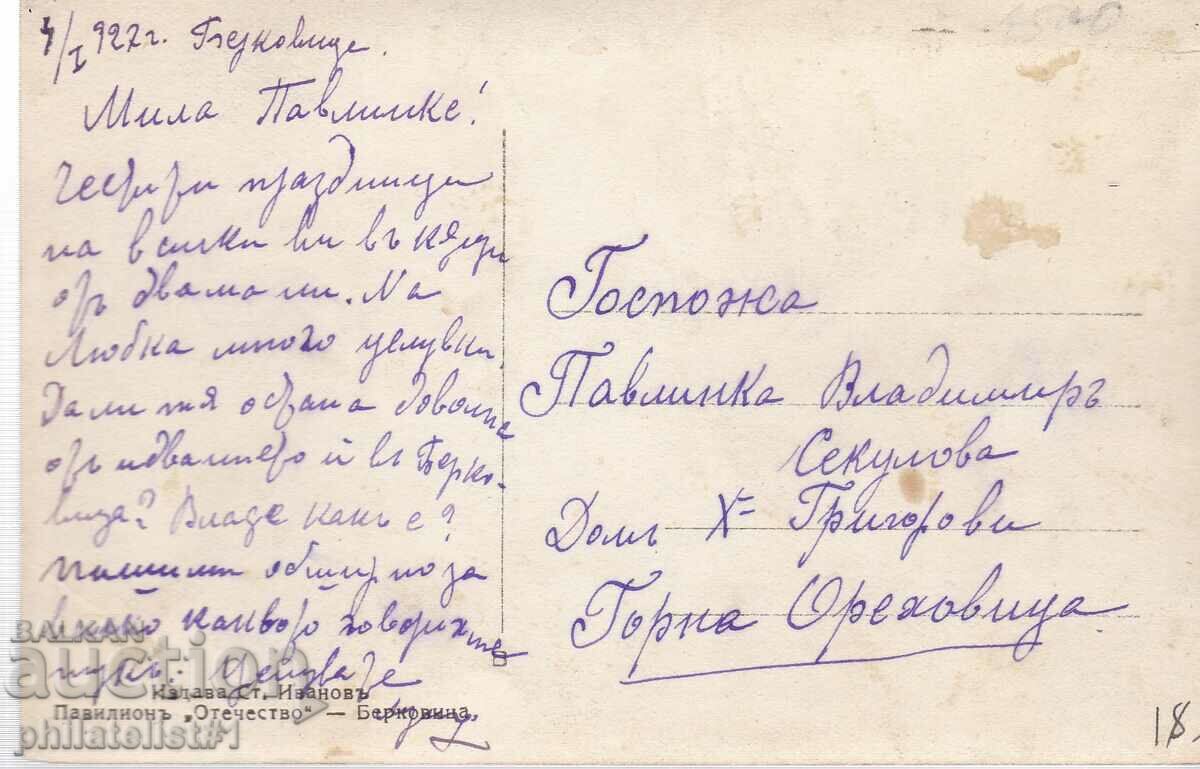 4/I 927 г. Берковица.
Мила Павлинке!
Честити празници
на всички ви въ къщи
отъ двама ни. На
Любка много целувки.
Дали тя остана доволна
отъ идването ѝ въ Берко-
вица? Владе какъ е?
Пишими обширно за
всичко какво говорихте
тукъ. Целува те
Госпожа
Павлинка Владимиръ
Секулова
Домъ Х= Григорови
Горна Ореховица
Издава Ст. Ивановъ
Павилионъ „Отечество" — Берковица
18.
BALKAN
auction
philatelist#1